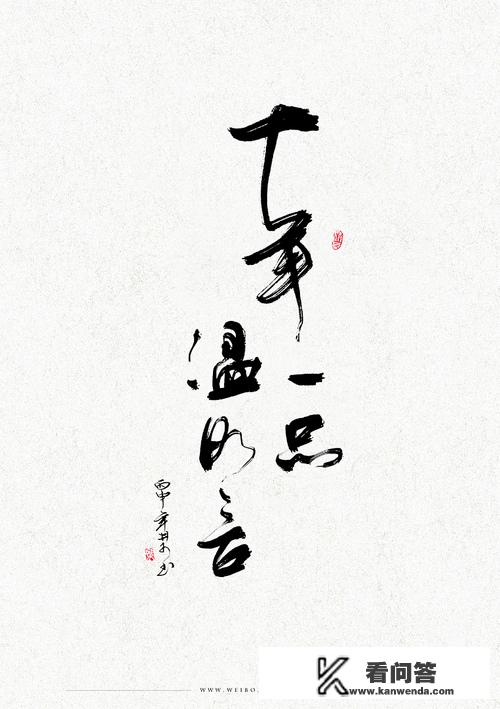 十年一品
温如言
丙申年
书
WWW.WEIBO.
K 看问答
www.kanwenda.com